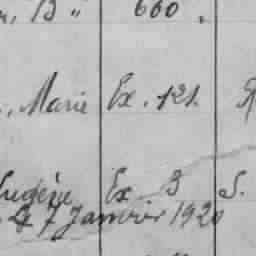 B " 660 "
, Marie Ex. 121.
Eugénie Ex 3 S.
Le 7 Janvier 1920